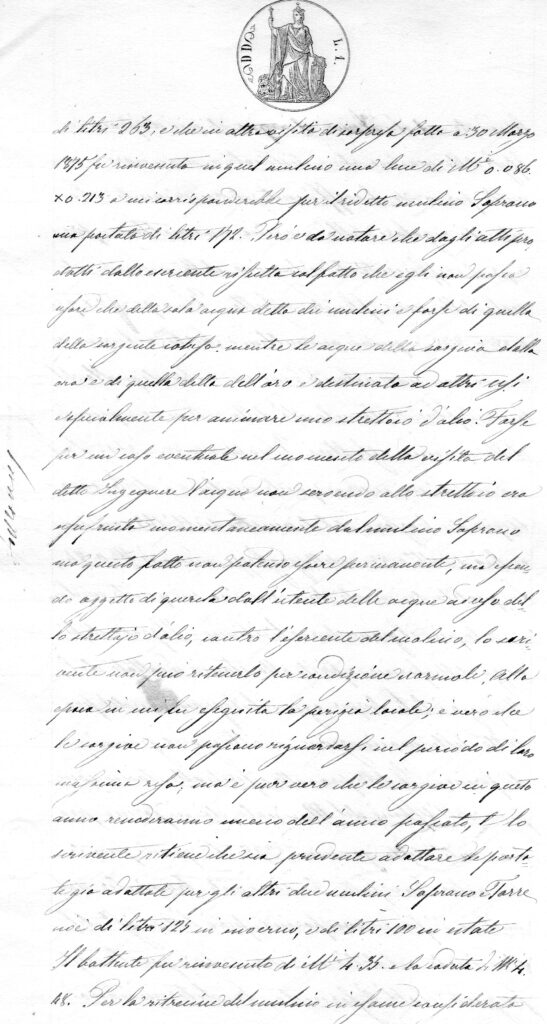 DD L. 1.
di litri 263, e che in altra visita di sorpresa fatta a 30 Marzo
1875 fu rinvenuta in quel mulino una luce di Mⁱ 0.086.
× 0.213 a cui corrisponderebbe per il ridetto mulino Soprano
una portata di litri 172. Però è da notare che dagli atti pro
dotti dallo esercente risulta col fatto che egli non possa
usare che della sola acqua detta dei mulini e forse di quella
della sorgente mentre le acque della sorgiva dalla
ora e di quella detta dell'oro è destinata ad altri usi
especialmente per animare uno strettoio d'olio. Forse
per un caso eventuale nel momento della visita del
detto Ingegnere l'acqua non servendo allo strettoio era
usufruita momentaneamente dal mulino Soprano
ma questo fatto non potendo essere permanente, ma essen
do oggetto di querela dall'utente delle acque ad uso del
lo strettojo d'olio, contro l'esercente del molino, lo scri
vente non può ritenerlo per condizione normale. Alla
epoca in cui fu eseguita la perizia locale, è vero che
le sorgive non possono riguardarsi nel periodo di loro
massima resa, ma è pur vero che le sorgive in questo
anno renderanno meno dell'anno passato, e lo
scrivente ritiene che sia prudente adottare le porta
te già adottate per gli altri due mulini Soprano e Torre
cioè di litri 123 in inverno, e di litri 100 in estate
Il battente fu rinvenuto di Mⁱ 4.35 e la caduta di Mⁱ 4.
48. Per la ritrecine del mulino in esame considerata